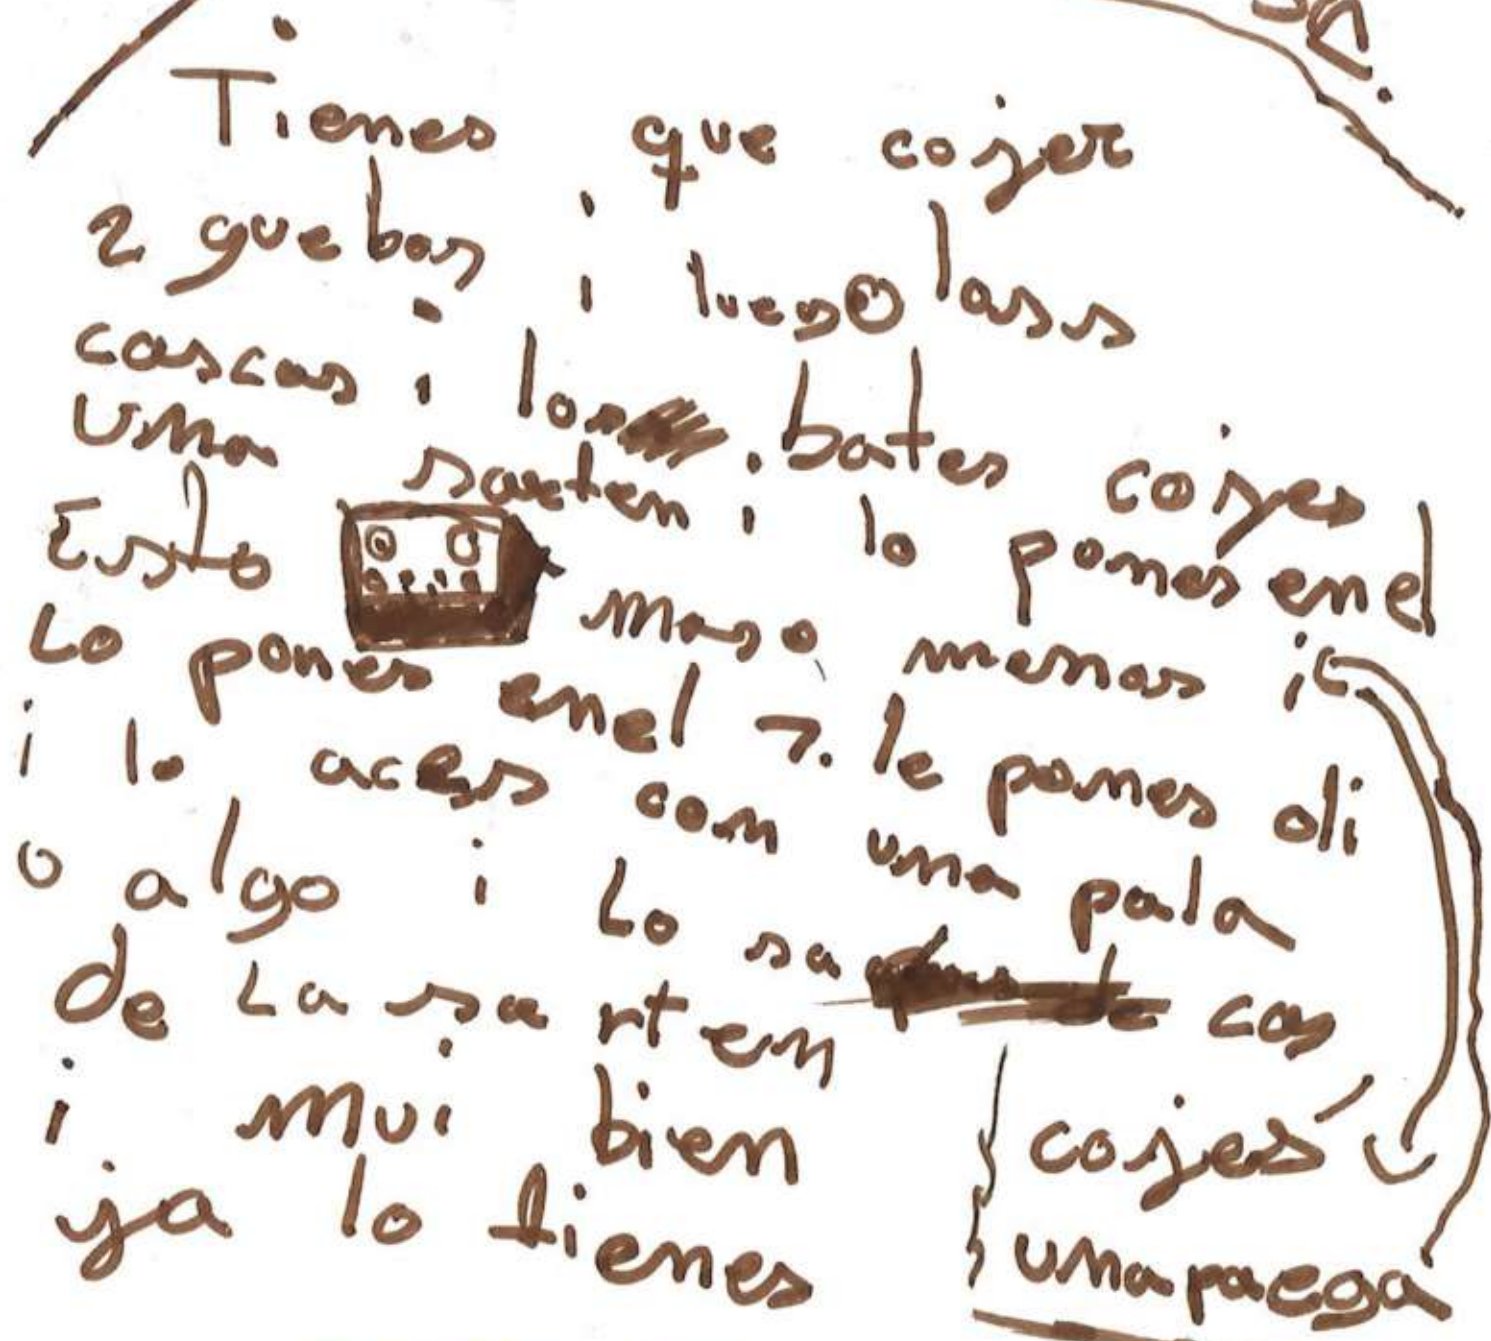 Tienes que cojer
2 guebos i luego lass
cascas i los bates cojes
una sarten i lo pones enel
Esto maso menos i
Lo pones enel 7. le pones oli
i lo aces con una pala
o algo i Lo sa cas
de La sa rten
i mui bien
ja lo tienes
cojes
unapaega